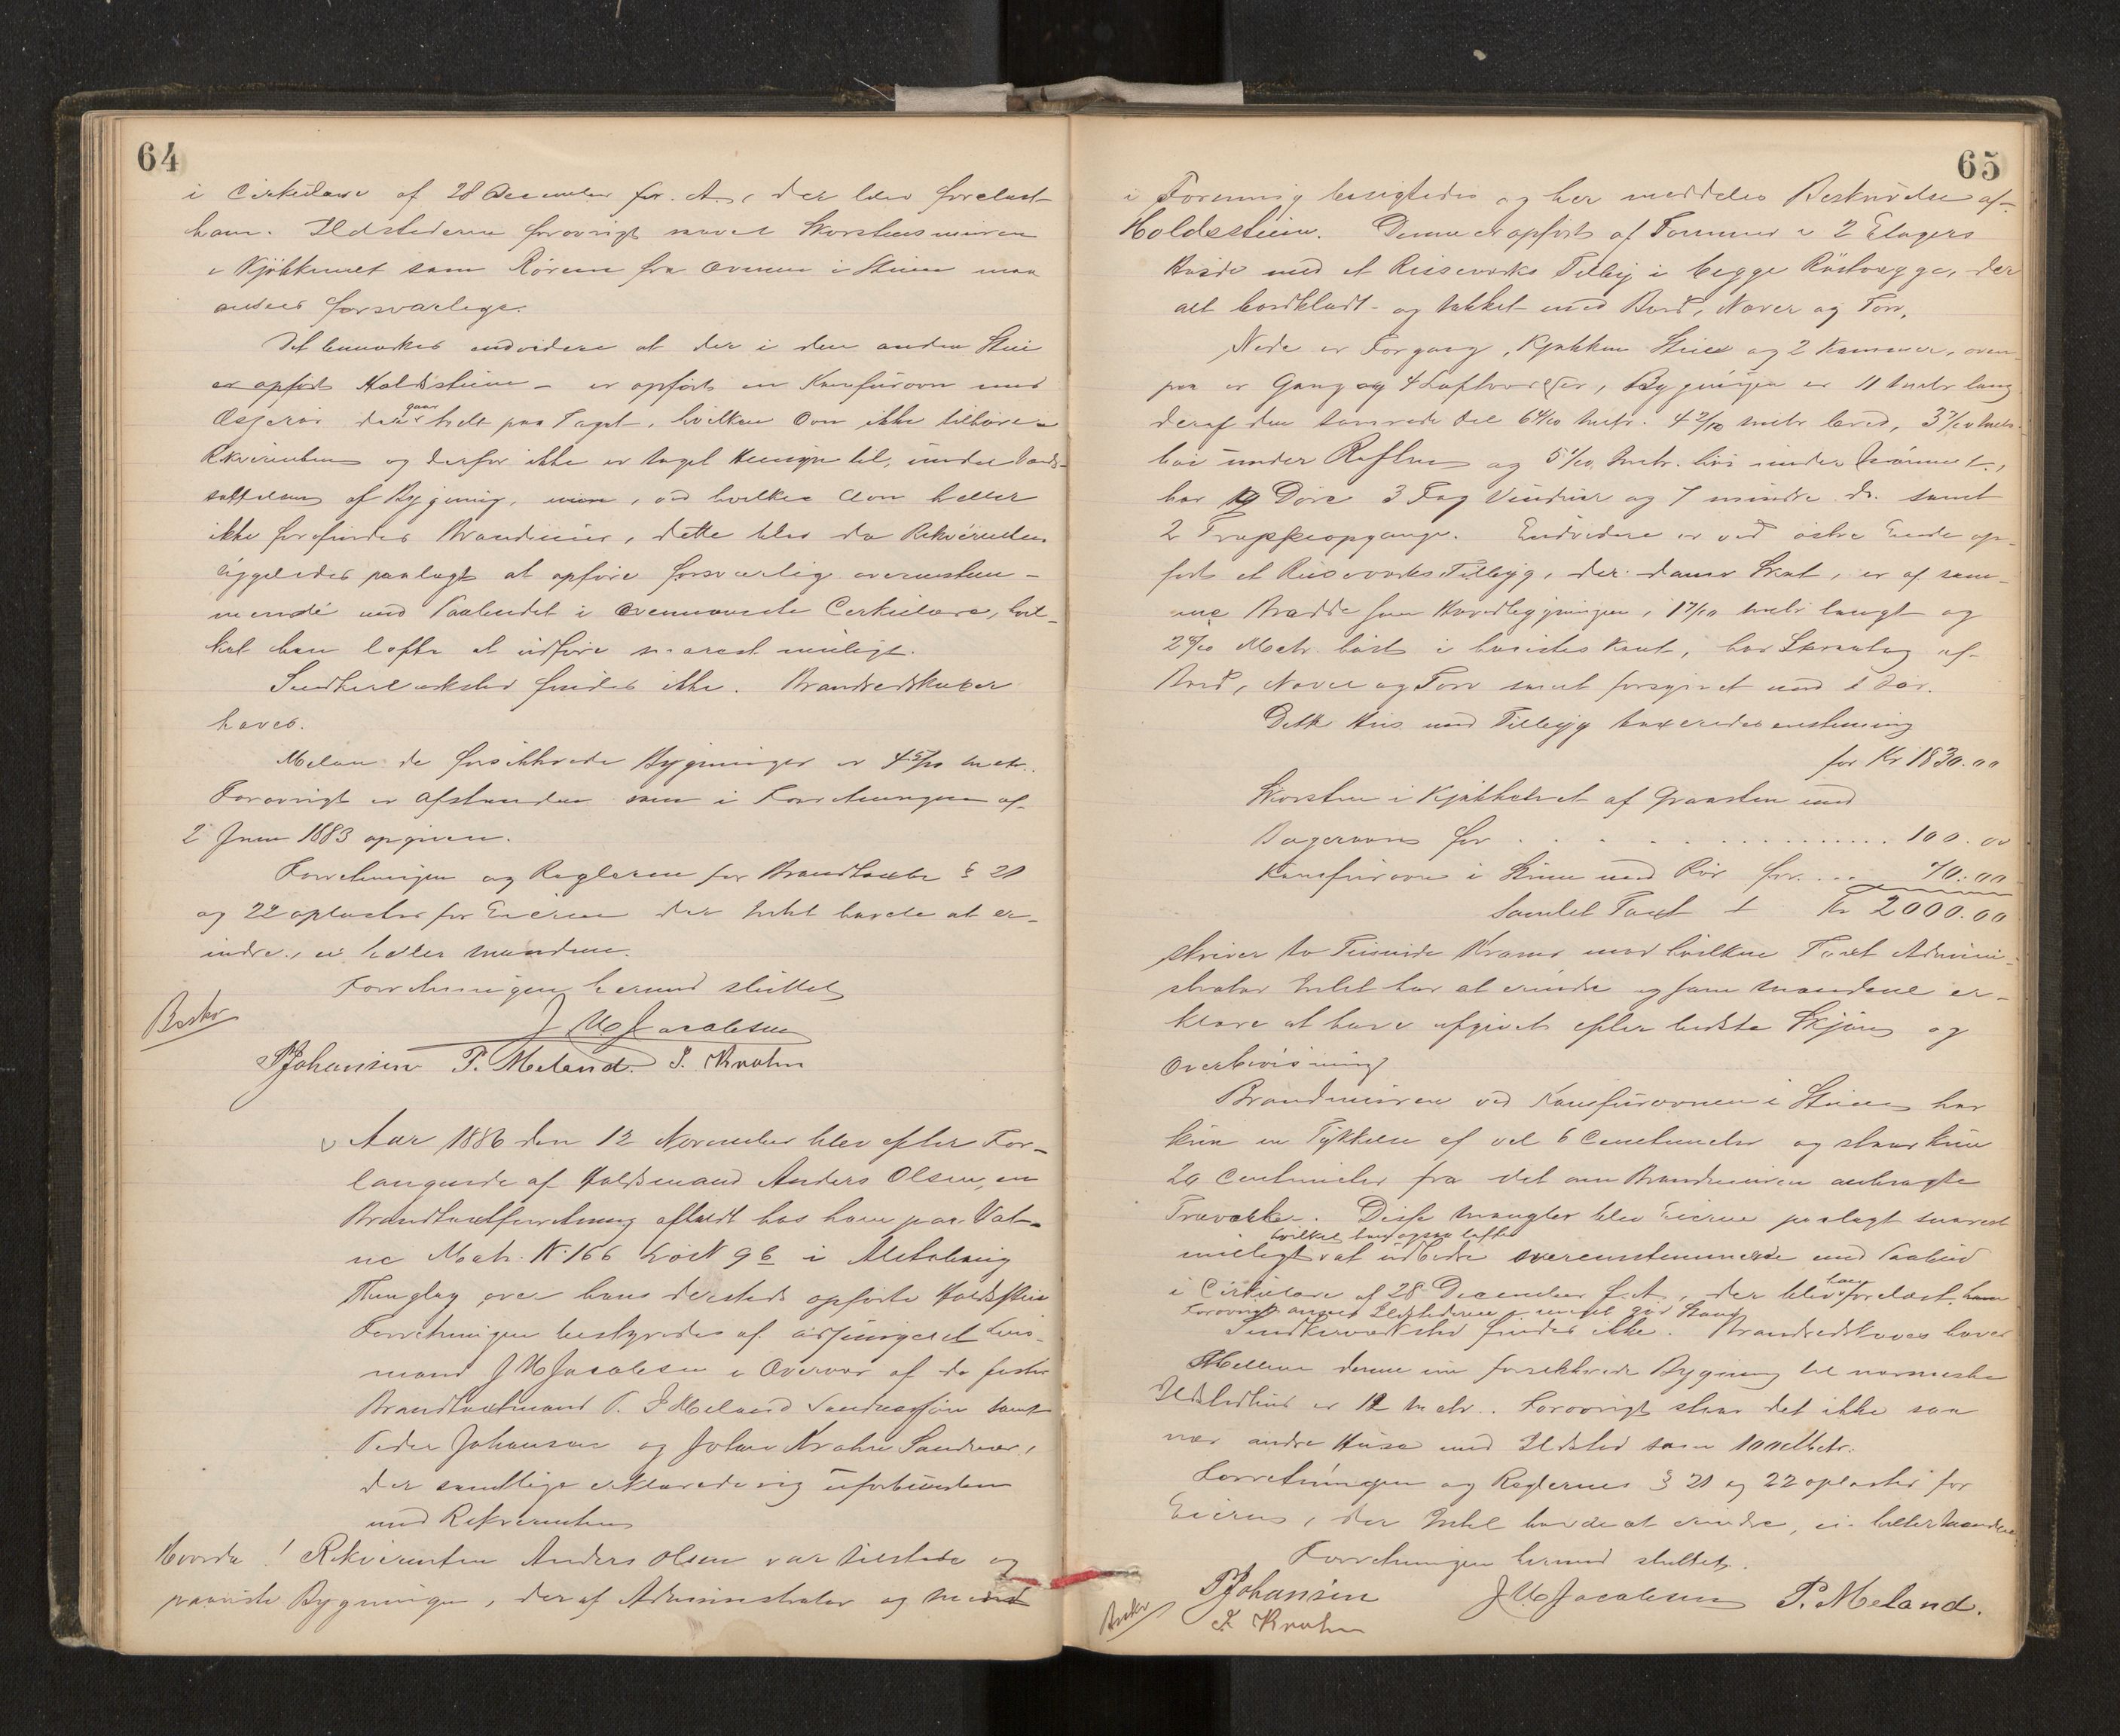 64
i Cirkulære af 28 December f. A., der blev forelæst
ham. Ildstederne forøvrigt saavel Skorstensmuren
i Kjøkkenet som Rørene fra Ovnen i Stuen maa
ansees forsvarlige.
Det bemærkes endvidere at der i den anden Stue
er opført Holdsstuen – er opført en Komfurovn med
Osgerør der gaar helt paa Taget, hvilken Ovn ikke tilhører
Rekvirenten og derfor ikke er taget Hensyn til, under Værd-
sættelsen af Bygning, men, ved hvilken Ovn heller
ikke forefindes Brandmur, dette blev da Rekvirenten
ligeledes paalagt at opføre forsvarlig overensstem-
mende med Paabudet i ovennævnte Cirkulære, hvil-
ket han lofte at udføre snarest muligt.
Snedkerværksted findes ikke. Brandredskaber
haves.
Mellem de forsikkrede Bygninger er 4 5/10 Metr.
Forøvrigt er Afstanden som i Forretningen af
2 Juni 1883 opgiven.
Forretningen og Reglerne for Brandtaxter § 21
og 22 oplæstes for Eieren der Intet havde at er-
indre, ei heller Mændene.
Forretningen hermed sluttet
Beskr
J M Jacobsen
P Johansen P. Meland. J. Krohn
Aar 1886 den 12 November blev efter For-
langende af Holdsmand Anders Olsen, en
Brandtaxtforretning afholdt hos ham paa Vat-
ne Matr. N. 166 Løb N 9b i
Thinglag over hans dersteds opførte Holdsstue
Forretningen bestyredes af adjungeret Lens-
mand J M Jacobsen i Overvær af de faste
Brandtaxtmænd P. J Meland samt
Peder Johansen og Johan Krohn Sandnær,
der samtlige erklærede sig uforbunden
med Rekvirenten
Hvorda! Rekvirenten Anders Olsen var tilstede og
paaviste Bygningen, der af Administrator og Mænd
65
i Forening besigtedes og her meddeles Beskrivelse af
Holdsstuen. Denne er opført af Tømmer i 2 Etagers
Høide med et Reisværks Tilbyg i begge Røstvægge, der
alt bordklædt og tækket med Bord, Næver og Torv.
Nede er Forgang, Kjøkken Stue og 2 Kammer, oven-
paa er Gang og 4 Loftværelser, Bygningen er 11 Metr lang
deraf den tømrede Del 6 4/10 Metr. 4 9/10 Metr bred, 3 7/10 Metr
høi under Raften og 5 1/10 Metr. høi under Mønnet,
har 10 Døre 3 Fag Vinduer og 7 mindre do. samt
2 Trappeopgange. Endvidere er ved østre Ende op-
ført et Reisværks Tilbyg, der danner Skot, er af sam-
me Bredde som Hovedbygningen, 1 7/10 Metr langt og
2 8/10 Metr. høit i høieste Kant, har Skraatag af
Bord, Næver og Torv samt forsynet med 1 Dør.
Dette Hus med Tilbyg taxeredes enstemmig
for Kr 1830.00
Skorsten i Kjøkkenet af Graasten med
Bagerovn for . . . 100.00
Komfurovn i Stuen med Rør for . . . 70.00
Samlet Taxt Kr 2000.00
skriver to Tusinde Kroner mod hvilken Taxt Admini-
strator Intet har at erindre og som Mændene er-
klære at have afgivet efter bedste Skjøn og
Overbevisning
Brandmuren ved Komfurovnen i Stuen har
kun en Tykkelse af vel 6 Centimeter og staar kun
20 Centimeter fra det om Brandmuren anbragte
Træværk. Disse Mangler blev Eieren paalagt snarest
hvilket han ogsaa lofte
muligt at udbedre overensstemmende med Paabud
i Cirkulære af 28 December f. A., der blev ham forelæst. ham
Forøvrigt ansees Ildstederne i meget god Stand
Snedkerværksted findes ikke. Brandredskaber haves
Mellem denne nu forsikkrede Bygning til nærmeste
Ildstedhus er 12 Metr. Forøvrigt staar det ikke saa
nær andre Huse med Ildsted som 100 Metr.
Forretningen og Reglernes § 21 og 22 oplæstes for
Eieren, der Intet havde at erindre, ei heller Mændene.
Forretningen hermed sluttet.
P Johansen J M Jacobsen P. Meland.
Beskr
J. Krohn